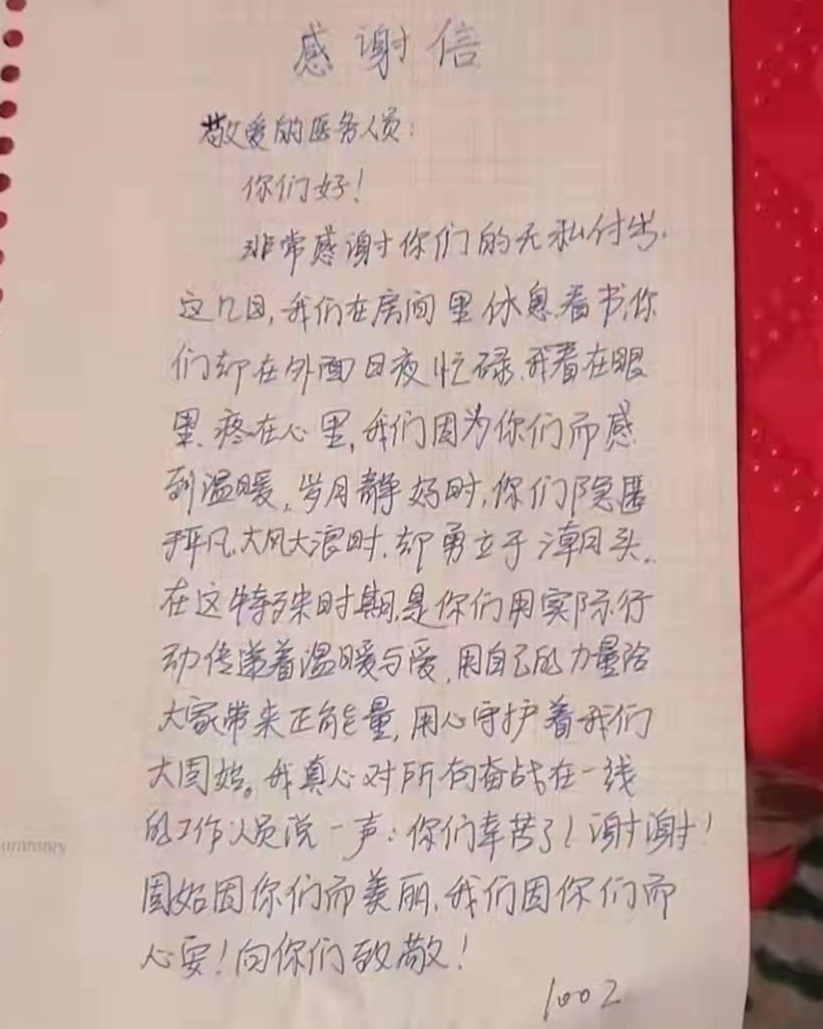 感谢信
敬爱的医务人员：
你们好！
非常感谢你们的无私付出.
这几日,我们在房间里休息.看书,你
们却在外面日夜忙碌.我看在眼
里.疼在心里,我们因为你们而感
到温暖,岁月静好时,你们隐匿
平凡,大风大浪时,却勇立于潮头.
在这特殊时期,是你们用实际行
动传递着温暖与爱,用自己的力量给
大家带来正能量,用心守护着我们
大固始。我真心对所有奋战在一线
的工作人员说一声:你们辛苦了!谢谢!
固始因你们而美丽,我们因你们而
心安!向你们致敬!
1002